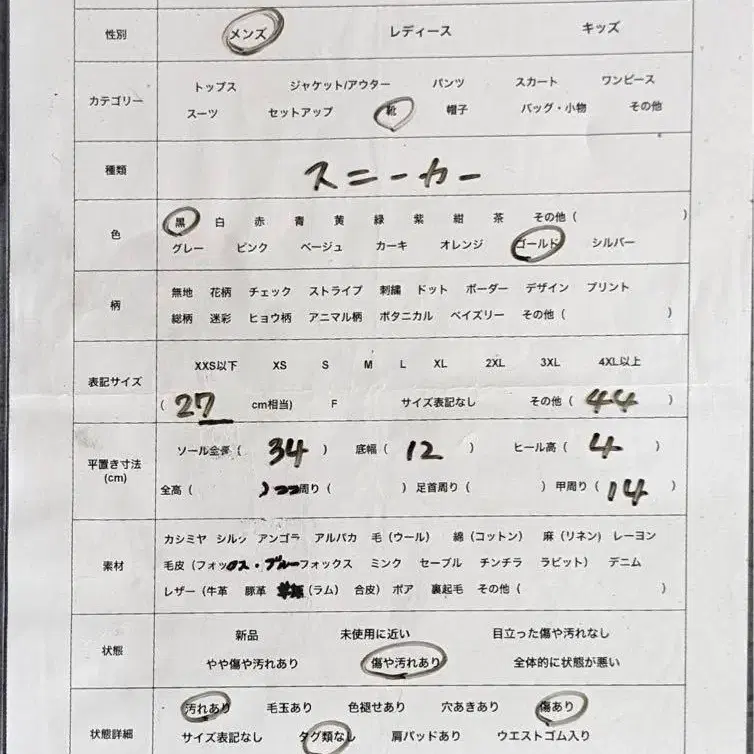 性別 メンズ レディース キッズ
トップス ジャケット/アウター パンツ スカート ワンピース
カテゴリー
スーツ セットアップ 靴 帽子 バッグ・小物 その他
種類 スニーカー
黒 白 赤 青 黄 緑 紫 紺 茶 その他 ( )
色
グレー ピンク ベージュ カーキ オレンジ ゴールド シルバー
無地 花柄 チェック ストライプ 刺繍 ドット ボーダー デザイン プリント
柄
総柄 迷彩 ヒョウ柄 アニマル柄 ボタニカル ペイズリー その他 ( )
XXS以下 XS S M L XL 2XL 3XL 4XL以上
表記サイズ
( 27 cm相当) F サイズ表記なし その他 ( 44 )
ソール全長 ( 34 ) 底幅 ( 12 ) ヒール高 ( 4 )
平置き寸法
(cm)
全高 ( ) つつ周り ( ) 足首周り ( ) 甲周り ( 14 )
カシミヤ シルク アンゴラ アルパカ 毛 (ウール) 綿 (コットン) 麻 (リネン) レーヨン
素材
毛皮 (フォックス・ブルーフォックス ミンク セーブル チンチラ ラビット) デニム
レザー (牛革 豚革 (ラム) 合皮) ボア 裏起毛 その他 ( )
新品 未使用に近い 目立った傷や汚れなし
状態
やや傷や汚れあり 傷や汚れあり 全体的に状態が悪い
汚れあり 毛玉あり 色褪せあり 穴あきあり 傷あり
状態詳細
サイズ表記なし タグ類なし 肩パッドあり ウエストゴム入り